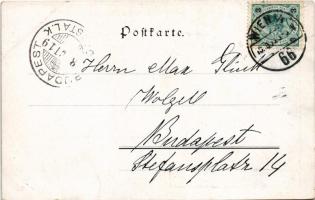 Postkarte.
WIEN
66
BUDAPEST
Herrn Max Glück
Wolzell
Budapest
Stefansplatz 14